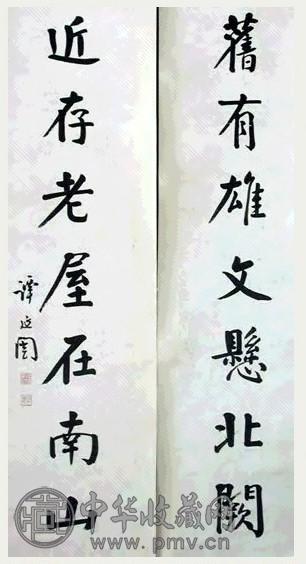 舊有雄文懸北闕
近存老屋在南山
譚延闓
中华收藏网
www.pmv.cn